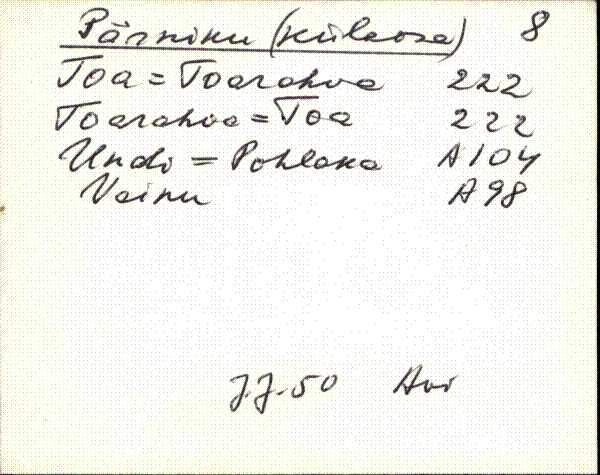 Pärniku (külaosa) 8
Toa = Toarahva 222
Toarahva = Toa 222
Undi = Pohlaka A104
Veinu A98
J.J.-50 Avi